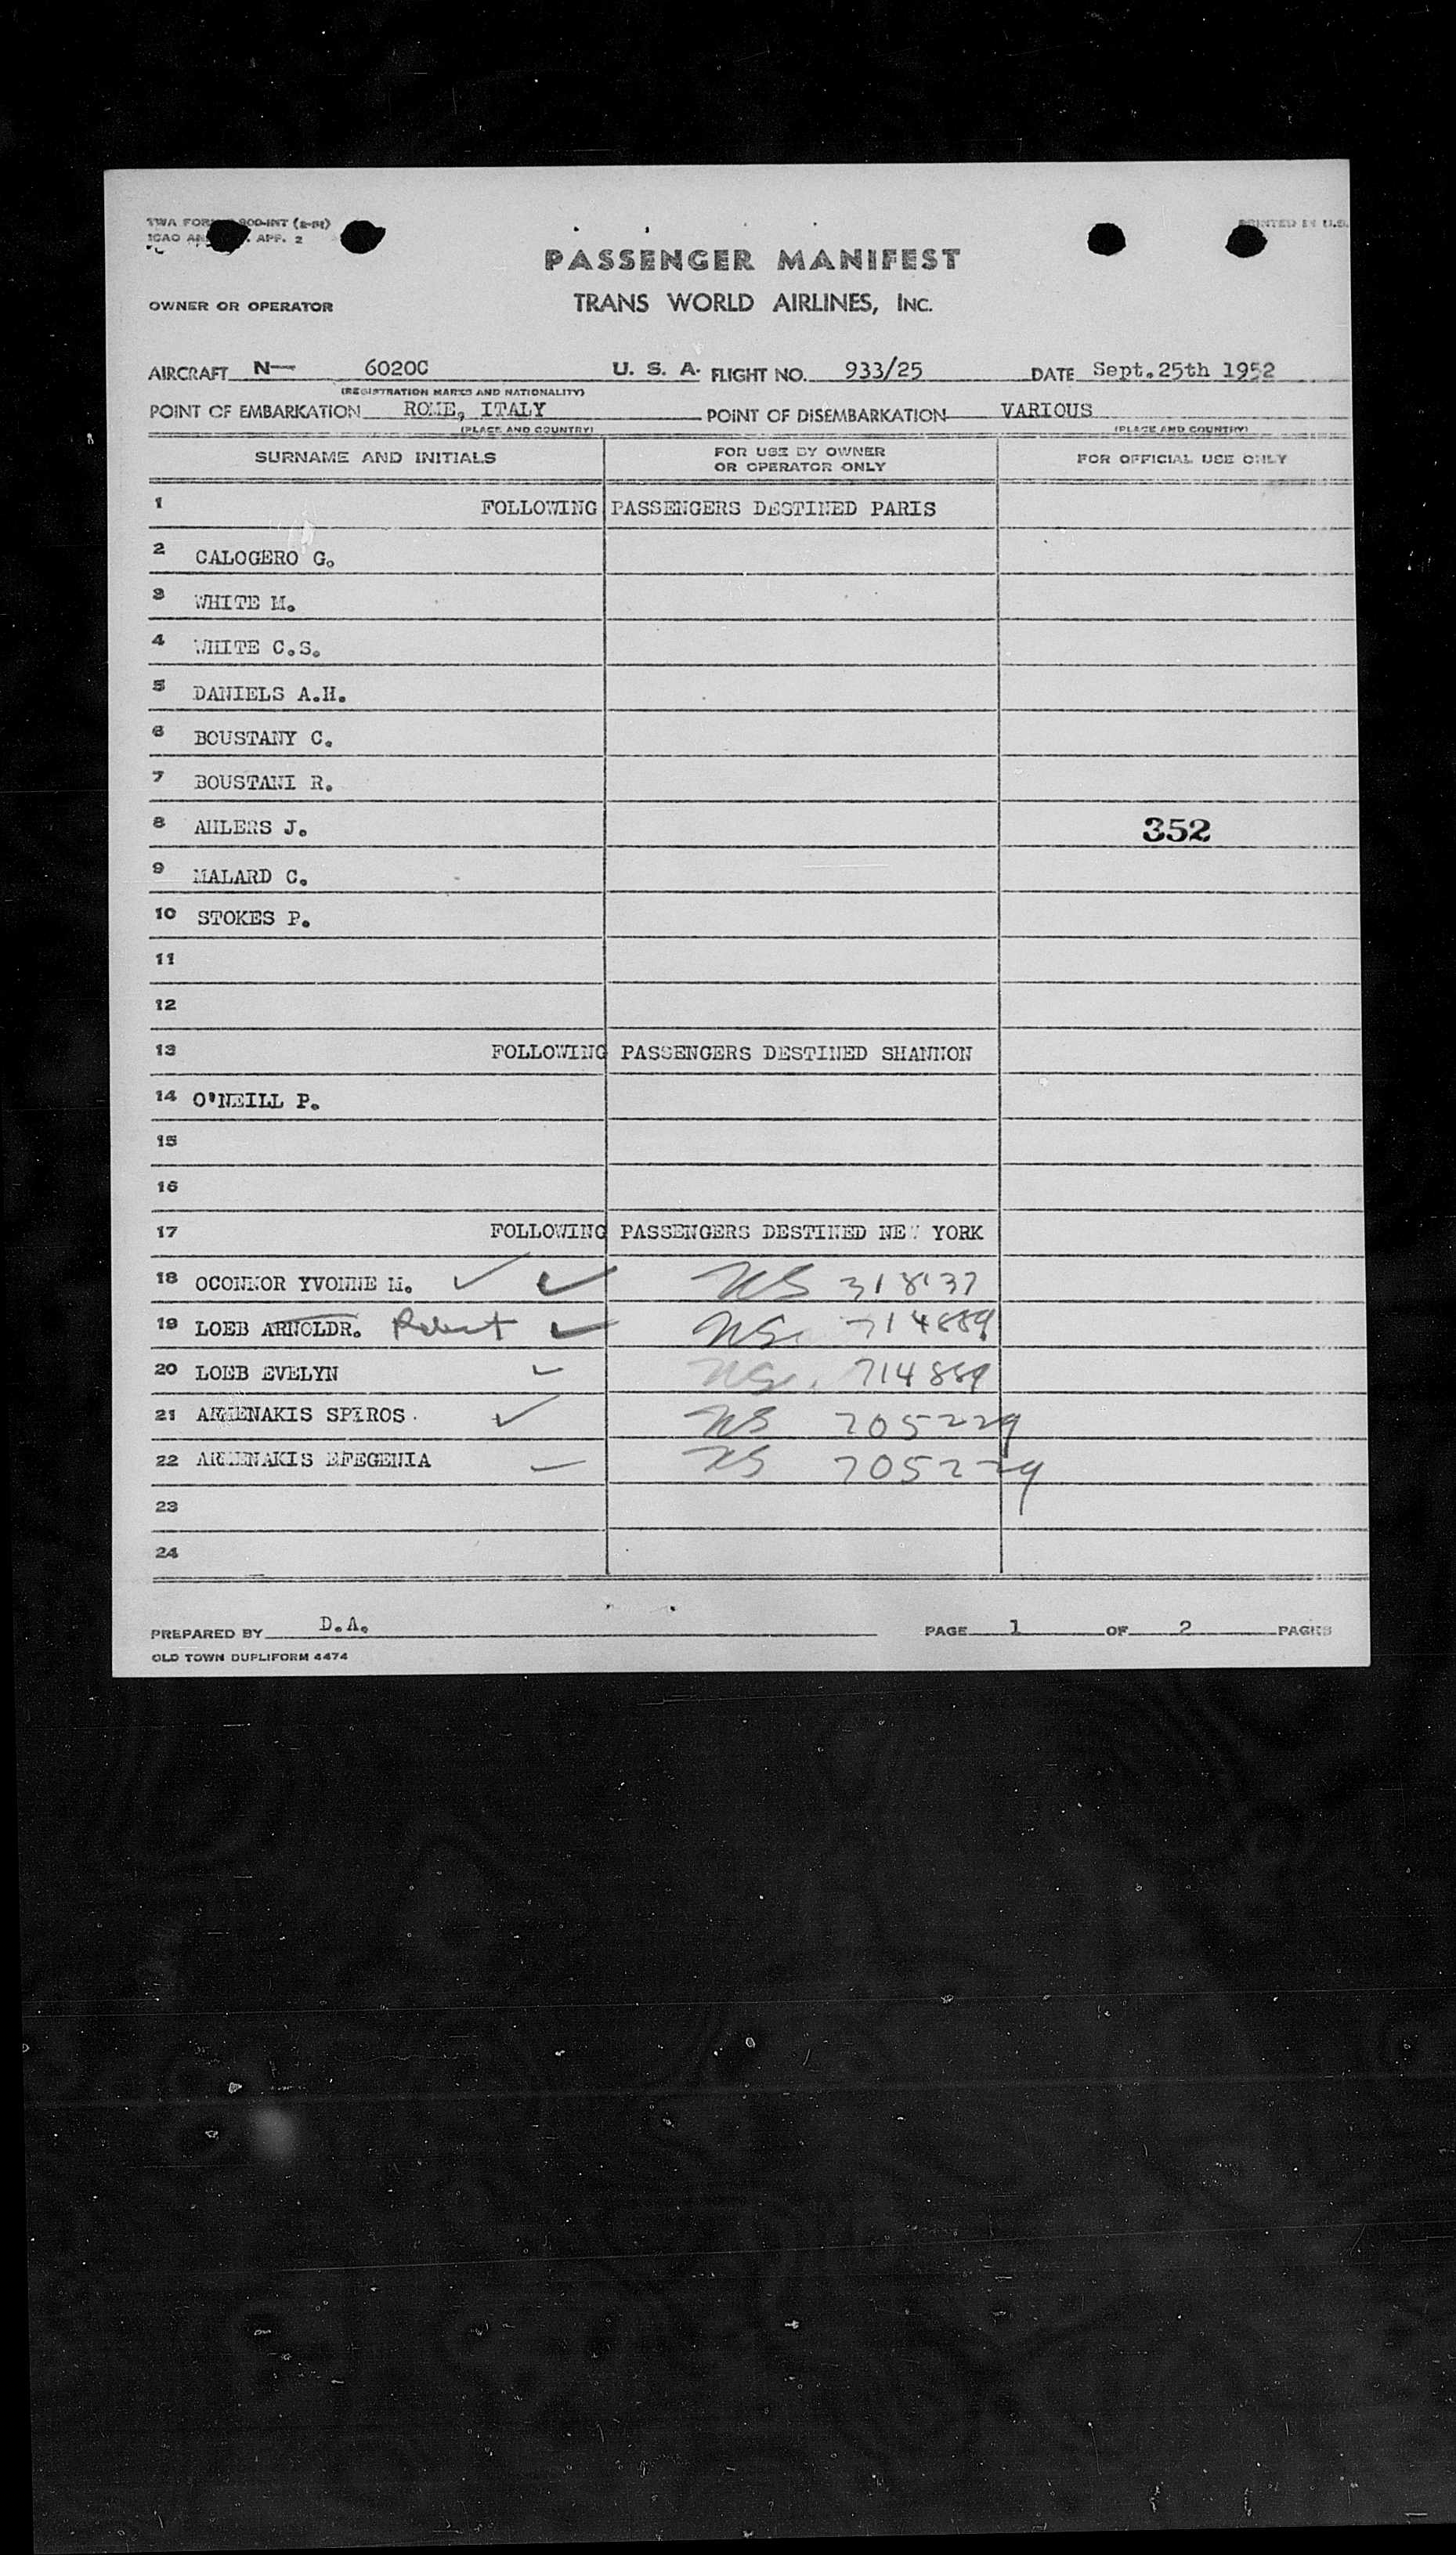 TWA FORM 800-INT (2-51)
ICAO AN APP. 2
PRINTED IN U.S.
PASSENGER MANIFEST
OWNER OR OPERATOR TRANS WORLD AIRLINES, INC.
AIRCRAFT N— 6020C U. S. A. FLIGHT NO. 933/25 DATE Sept.25th 1952
(REGISTRATION MARKS AND NATIONALITY)
POINT OF EMBARKATION ROME, ITALY POINT OF DISEMBARKATION VARIOUS
(PLACE AND COUNTRY) (PLACE AND COUNTRY)
SURNAME AND INITIALS FOR USE BY OWNER OR OPERATOR ONLY FOR OFFICIAL USE ONLY
1 FOLLOWING PASSENGERS DESTINED PARIS
2 CALOGERO G.
3 WHITE M.
4 WHITE C.S.
5 DANIELS A.H.
6 BOUSTANY C.
7 BOUSTANI R.
8 AHLERS J. 352
9 MALARD C.
10 STOKES P.
11
12
13 FOLLOWING PASSENGERS DESTINED SHANNON
14 O'NEILL P.
15
16
17 FOLLOWING PASSENGERS DESTINED NEW YORK
18 OCONNOR YVONNE M. ✓ ✓ US 318137
19 LOEB ARNOLDR. Robert ✓ US. 714889
20 LOEB EVELYN ✓ US. 714889
21 ARMENAKIS SPIROS. ✓ US 705229
22 ARMENAKIS EFEGENIA US 705229
23
24
PREPARED BY D.A. PAGE 1 OF 2 PAGES
OLD TOWN DUPLIFORM 4474